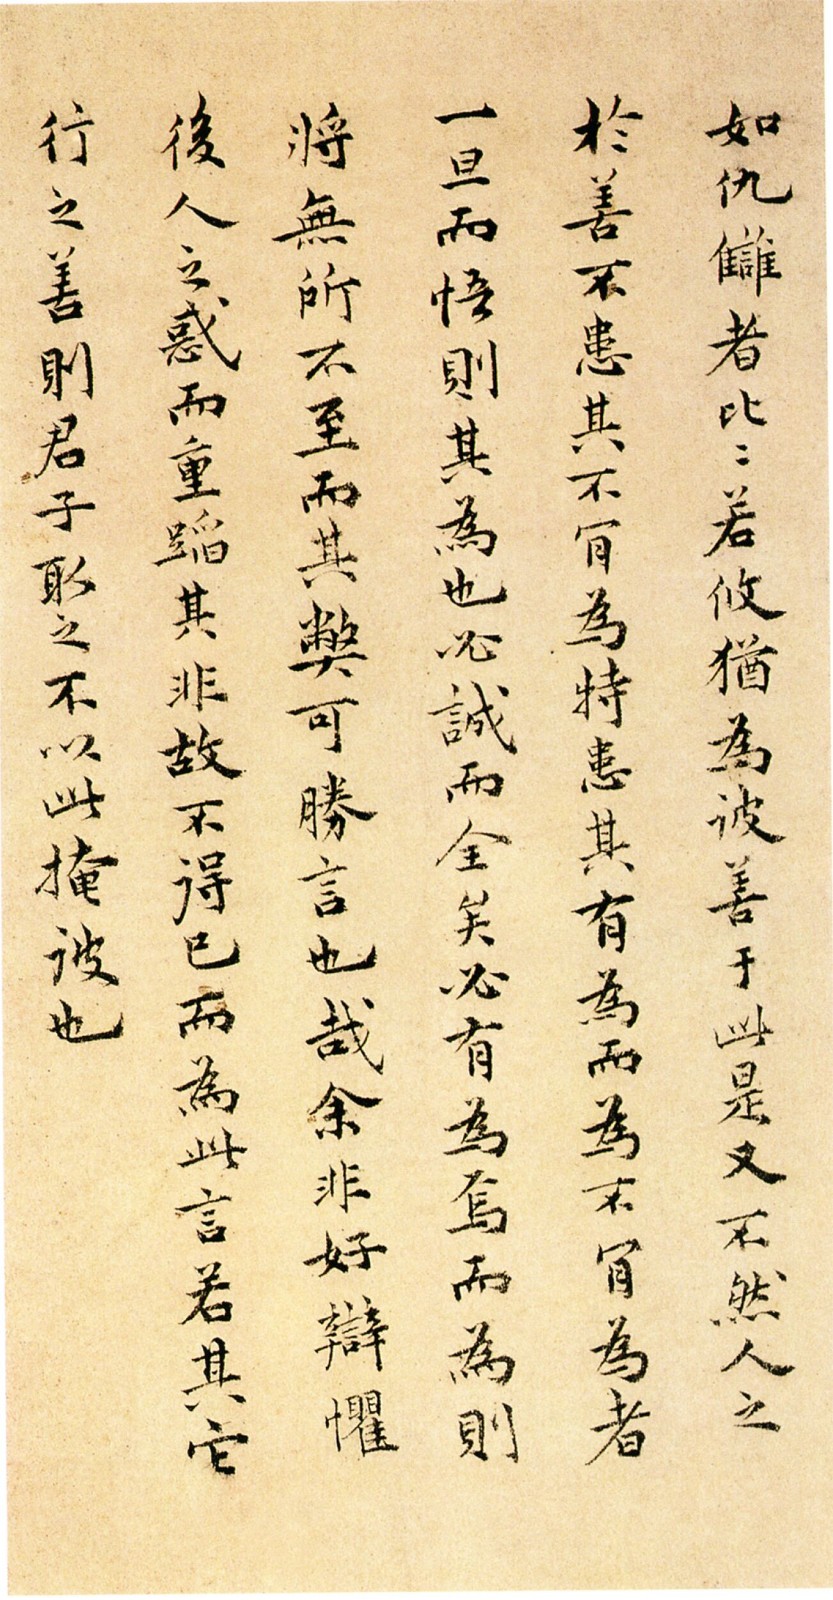 如仇讎者比〻若攸猶為诐善于此是又不然人之
於善不患其不肯為特患其有為而為不肯為者
一旦而悟則其為也必誠而全矣必有為焉而為則
將無所不至而其弊可勝言也哉余非好辯懼
後人之惑而重蹈其非故不得已而為此言若其它
行之善則君子取之不以此掩诐也